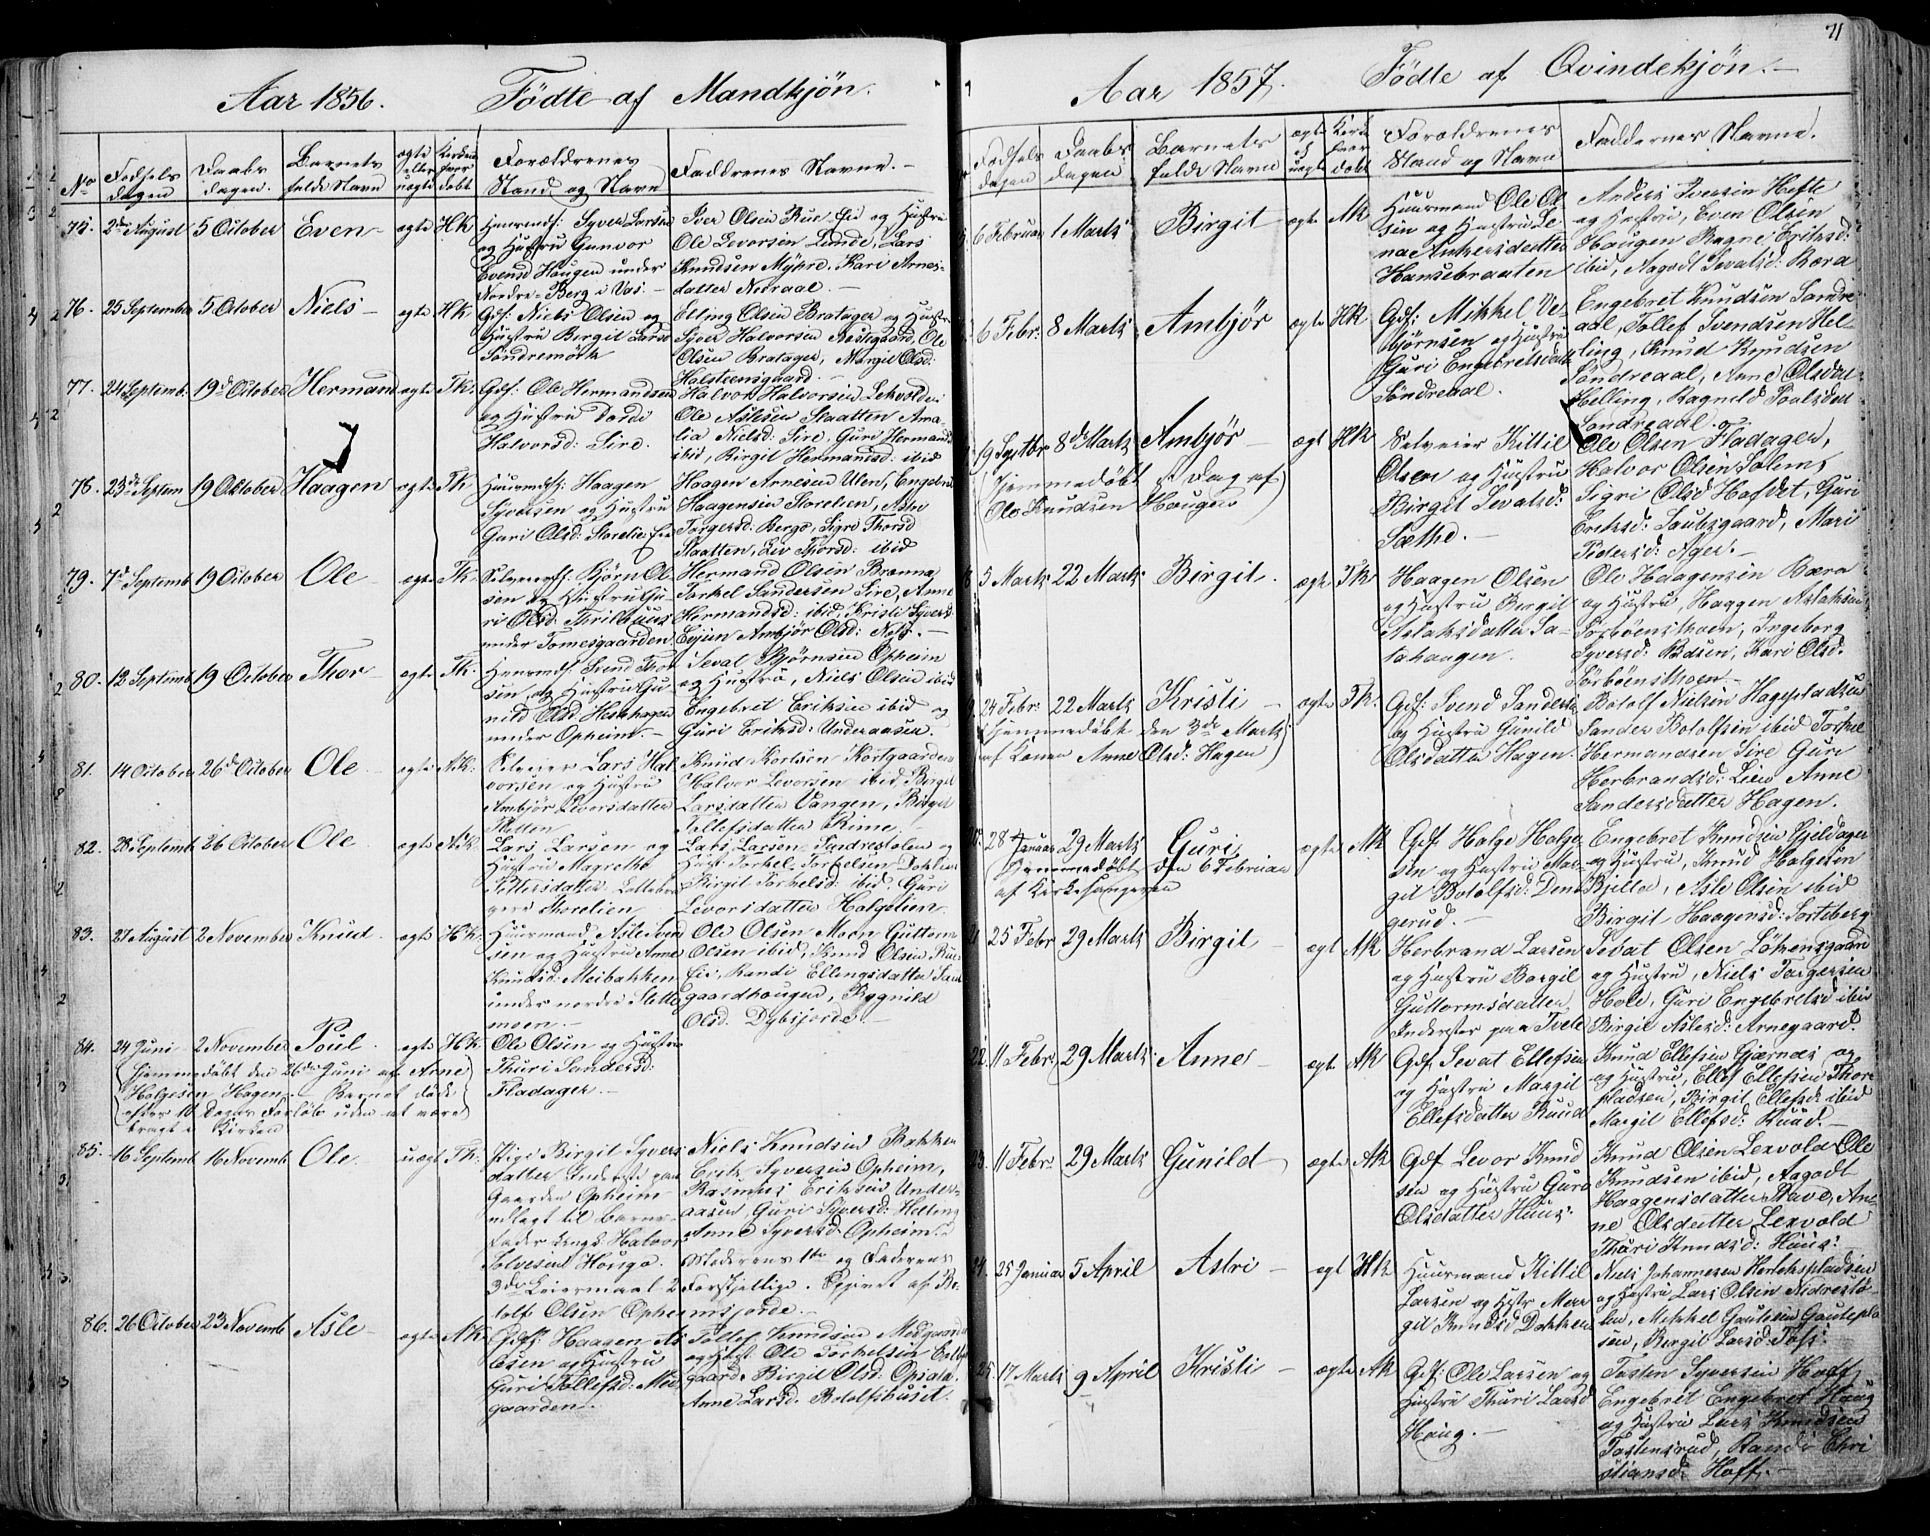 Aar 1856. Födte af Mandkjön.
No
Födsels dagen
Daabs dagen.
Barnets fulde Navn
ægte eller uægte
Forældrenes Stand og Navn
Faddernes Navne.
75. 2den August 5 October Even ægte Hk.
Huusmdf: Syver Larsen
og Hustru Gunvor
Evensd Haugen under
Nordre-Berg i Vas.
Iver Olsen Rue, Eie og Hustru
Ole Levorsen Lunde, Lars
Knudsen Myhre, Kari Arnes-
datter Nedraal.
76. 25 September 5 October Niels ægte Hk.
Gdf: Niels Olsen og
Hustru Birgit Larsd
Söndremöth
Elling Olsen Bratager og Hustru
Syver Halvorsen Rostegaard, Ole
Olsen Bratager, Margit Olsd:
Halsteensgaard.
77. 24 Septemb: 19de October Hermand ægte Tk:
Gdf: Ole Hermandsen
og Hustru Dordi
Halvorsd: Sire.
Halvor Halvorsen Sekvolden
Ole Aslesen Staatten, Ama-
lia Nielsd: Sire, Guri Hermands
ibid, Birgit Hermandsd: ibid
78. 23de Septem 19 Oktober Haagen ægte Tk
Huusmdf: Haagen
Syversen og Hustru
Guri Olsd: Storelie Eie
Haagen Arnesen Ulen, Engebret
Haagensen Storelien, Astri
Torgersd: Bergo, Sigri Thorsd
Staatten, Liv Thorsd: ibid
79. 7de Septemb 19 October Ole ægte Tk.
Selveierf: Björn Ol-
sen og Hustru Gu-
ri Olsd: Thrilhuus
under Tomesgaarden
Hermand Olsen Brenna
Torkel Sandersen Sire, Anne
Hermandsd: ibid, Kristi Syversd
Eyjen Ambjör Olsd: Næss.
80. 12 Septemb 19 October Thor ægte Tk.
Huusmdf: Svend Thor-
sen og Hustru Gu-
nild Olsd Heshhagen
under Opheim.
Seval Björnsen Opheim
og Hustru, Niels Olsen ibid
Engebret Eriksen ibid og
Guri Eriksd: Underaasen.
81. 14 October 26de October Ole ægte Ak.
Selveier Lars Hal
vorsen og Hustru
Ambjör Levorsdatter
Sletten
Knud Korlsen Kortgaarden
Halvor Levorsen ibid, Birgit
Larsdatter Vangen, Birgit
Tollefsdatter Rime
82. 28 Septemb 26 October Ole ægte Ak.
Lars Larsen og
Hustru Magrethe
Pettersdatter
Storelien
Lars Larsen Sundrestolen og
Hust: Torkel Torkelsen Dokken
Birgit Torkelsd: ibid, Guri
Levorsdatter Halgelien
83. 27 August 2 November Knud ægte Hk:
Huusmand Asle Iver
sen og Hustru Anne
Knudsd: Meibakken
under nordre Slette-
moen.
Ole Olsen Moen Guttorm
Olsen ibid, Knud Olsen Rue-
Eie, Randi Ellingsdatter Sand
gaardhougen, Ragnild
Olsd. Dybsjorde.
84. 24 Juni 2 November Poul ægte Hk.
Ole Olsen og Hustru
Thuri Sandersd:
Fladager.
(Hjemmedöbt den 26de Juni af Arne
Halgesen Hagen. Barnet döde
efter 10 Dages Forlöb uden at være
bragt i Kirken)
85. 16 Septemb 16 Novemb Ole uægt Tk.
Pige Birgit Syvers
datter Inderste paa
Gaarden Opheim
udlagt til Barne-
fader Ungk. Halvor
Solvesen Hougo.
3die Leiermaal 2
Niels Knudsen Bakken
Erik Syversen Opheim,
Rasmus Eriksen Under-
aasen, Guri Syversd: Helling
Anne Syversd Opheim.
Moderens 1te og Faderens
Forskjellige. Opgivet af Bo-
tolf Olsen Opheimsjorde.
86. 26 October 23 Novemb Asle ægte Ak.
Gdf: Haagen As
lesen og Hustru
Guri Tollefsd: Mid-
gaarden.
Tollef Knudsen Midgaard
og Hust Ole Torkelsen
gaard, Birgit Olsd: Opsata.
Anne Larsd. Bolofshuset.
71
Aar 1857. Födte af Qvindekjön.
Födsels dagen
Daabs dagen
Barnets fulde Navne
ægte el uægte
Kirke hvor döbt
Forældrenes Stand og Navn
Faddernes Navne.
6 Februar 1 Marts Birgit ægte Ak
Huusmand Ole Ol
sen og Hustru Le-
na Ankersdatter
Hansebraaten
Anders Iversen Hefte
og Hustru, Even Olsen
Haugen Ragne Eriksd:
ibid, Aagodt Sevatsd: Bæra
6 Febr: 8 Marts Ambjör ægte Hk
Gdf: Mikkel Ve-
björnsen og Hustru
Guri Engebretsdatt
Söndreaal.
Engebret Knudsen Sondre
aal, Tollef Svendsen Hel-
ling, Knud Knudsen
Söndreaal, Anne Olsdat
Helling, Ragnild Poulsdat
Sondreaal.
19 Septbr 8de Marts Ambjör ægt Hk
(Hjemmedöbt s: Dag af
Ole Knudsen Haugen)
Selveier Kittil
Olsen og Hustru
Birgit Sevatsd:
Sæthe.
Ole Olsen Fladager,
Halvor Olsen Salem,
Sigri Olsd Hafdet, Guri
Eriksd: Saubsgaard, Mari
Pedersd: Ager.
5 Marts 22 Marts Birgit. ægte Tk
Haagen Olsen
og Hustru Birgit
Aslaksdatter Sa-
tahaugen.
Ole Haagensen Bæra
og Hustru, Haagen Aslaksen
Sörböensmoen, Ingeborg
Syversd: Rudsen, Kari Olsd:
Sörböensmoen
24 Febr: 22 Marts Kristi ægte Tk.
(Hjemmedöbt den 3de Marts
af Konen Anne Olsd: Hagen)
Gdf: Svend Sanders
og Hustru Gunild
Olsdatter Hagen
Botolf Nielsen Hagepladsen
Sander Botolfsen ibid Torkel
Hermandsen Sire Guri
Herbrandsd: Lien Anne
Sandersdatter Hagen.
28 Januar 29 Marts Guri, ægte Ak
Hjemmedöbt den 6 Februar
af Kirkesangeren
Gdf Halge Halge
sen og Hustru Mar-
git Botolfsd: Den-
gerud.
Engebret Knudsen Gjeldager
og Hustru, Knud Halgesen
Bjella, Asle Olsen ibid
Birgit Haagensd: Sorteberg
25 Febr 29 Marts Birgit ægt Ak
Herbrand Larsen
og Hustru Borgil
Guttormsdatter
Inderster paa Tveto
Sevat Olsen Löhensgaard
og Hustru, Niels Torgersen
Hole, Guri Engebretsd ibid
Birgit Aslesd: Arnegaard.
22. 11 Febr, 29 Marts Anne ægt Ak
Gdf Sevat Ellefsen
og Hustru Margit
Ellefsdatter Ruud
Knud Ellefsen Gjærnes og
og Hustru, Ellef Ellefsen Thore
pladsen, Birgit Ellefsd: ibid
Margit Ellefsd: Ruud.
23. 11 Febr. 29 Marts Gunild ægte Ak
Gdf Levor Knud
sen og Hustru Guro
Olsdatter Huus.
Knud Olsen Lexvold Ole
Knudsen ibid, Aagodt
Haagensdatter Stave, An-
ne Olsdatter Lexvold
Thuri Knudsd: Huus.
24. 25 Januar 5 April Astri ægt Hk
Huusmand Kittil
Larsen og Hustr Mar-
git Knudsd Dokken
Niels Johannesen Herleikspladsen
og Hustru Lars Olsen Nidrestö-
len, Mikkel Gautesen Gautepla
sen, Birgit Larsd: Tofs.
25. 17 Marts 9 April Kristi ægte Ak
Gdf: Ole Larsen og
Hustru Thuri Larsd
Haug.
Tosten Syversen Hoff
Engebret Engebret Haug
og Hustru Lars Knudsen
Tostensrud, Randi Chri
stiansd: Hoff.